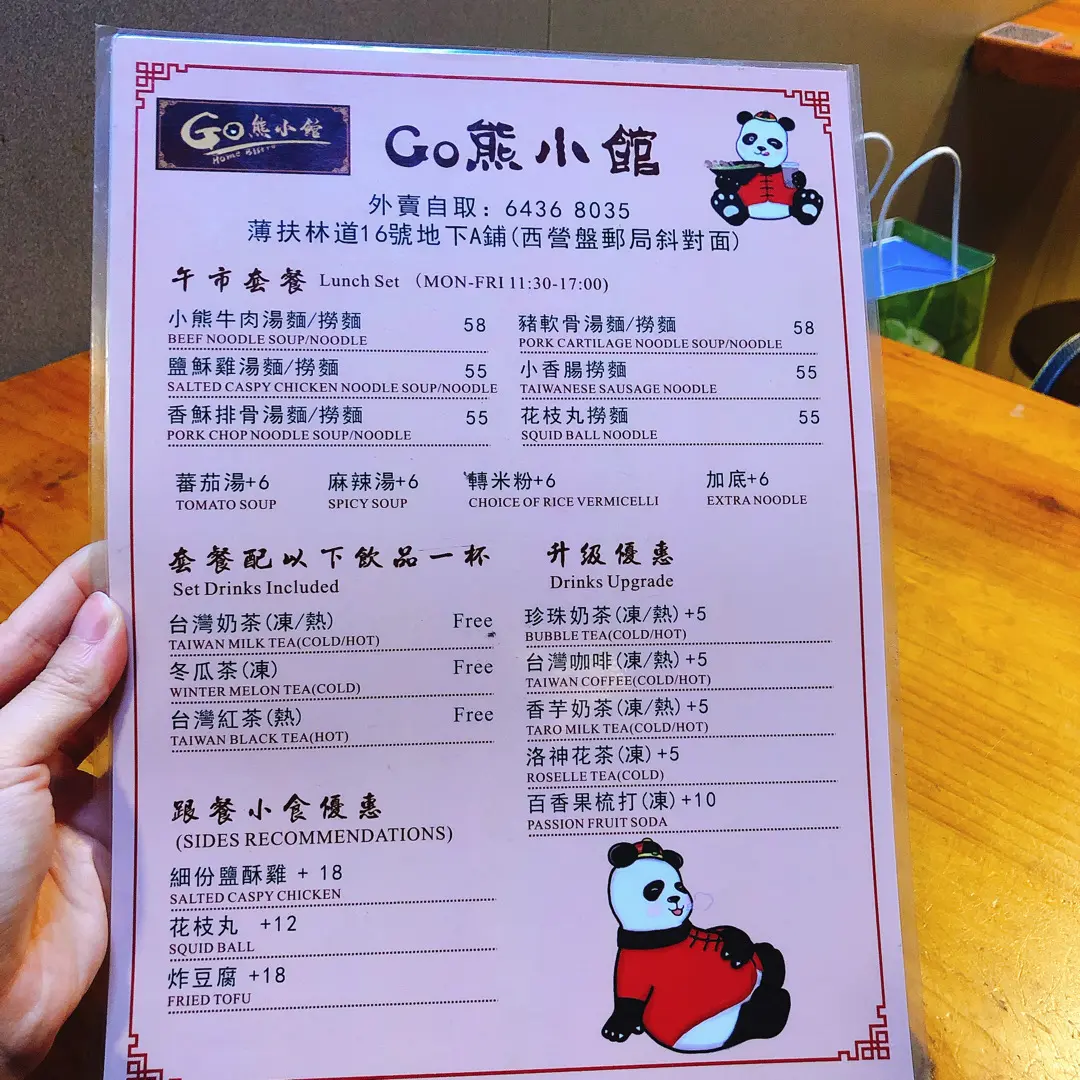 Go熊小館
Home Bistro
Go熊小館
外賣自取：6436 8035
薄扶林道16號地下A鋪(西營盤郵局斜對面)
午市套餐 Lunch Set （MON-FRI 11:30-17:00)
小熊牛肉湯麵/撈麵 58
BEEF NOODLE SOUP/NOODLE
鹽酥雞湯麵/撈麵 55
SALTED CASPY CHICKEN NOODLE SOUP/NOODLE
香酥排骨湯麵/撈麵 55
PORK CHOP NOODLE SOUP/NOODLE
豬軟骨湯麵/撈麵 58
PORK CARTILAGE NOODLE SOUP/NOODLE
小香腸撈麵 55
TAIWANESE SAUSAGE NOODLE
花枝丸撈麵 55
SQUID BALL NOODLE
蕃茄湯+6 麻辣湯+6 轉米粉+6 加底+6
TOMATO SOUP SPICY SOUP CHOICE OF RICE VERMICELLI EXTRA NOODLE
套餐配以下飲品一杯
Set Drinks Included
台灣奶茶(凍/熱) Free
TAIWAN MILK TEA(COLD/HOT)
冬瓜茶(凍) Free
WINTER MELON TEA(COLD)
台灣紅茶(熱) Free
TAIWAN BLACK TEA(HOT)
升级優惠
Drinks Upgrade
珍珠奶茶(凍/熱)+5
BUBBLE TEA(COLD/HOT)
台灣咖啡(凍/熱)+5
TAIWAN COFFEE(COLD/HOT)
香芋奶茶(凍/熱)+5
TARO MILK TEA(COLD/HOT)
洛神花茶(凍)+5
ROSELLE TEA(COLD)
百香果梳打(凍)+10
PASSION FRUIT SODA
跟餐小食優惠
(SIDES RECOMMENDATIONS)
細份鹽酥雞 + 18
SALTED CASPY CHICKEN
花枝丸 +12
SQUID BALL
炸豆腐 +18
FRIED TOFU